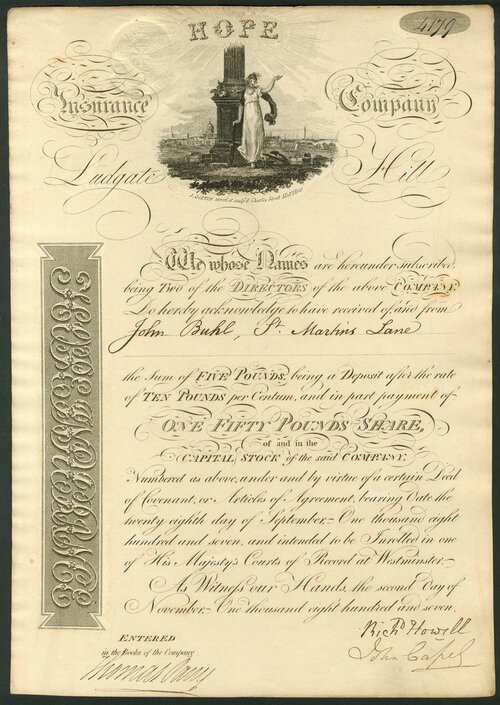 HOPE
4179
Insurance Company
Ludgate Hill
We whose Names are hereunder subscribed,
being Two of the DIRECTORS of the above COMPANY,
Do hereby acknowledge to have received of, and from
John Buhl, St. Martins Lane
the Sum of FIVE POUNDS, being a Deposit after the rate
of TEN POUNDS per Centum, and in part payment of
ONE FIFTY POUNDS SHARE,
of and in the
CAPITAL STOCK of the said COMPANY.
Numbered as above, under and by virtue of a certain Deed
of Covenant, or Articles of Agreement, bearing Date the
twenty eighth day of September, One thousand eight
hundred and seven, and intended to be Enrolled in one
of His Majesty's Courts of Record at Westminster.
As Witness our Hands, the second Day of
November, One thousand eight hundred and seven.
Richd Howell
John Capel
ENTERED
in the Books of the Company
Thomas Parry